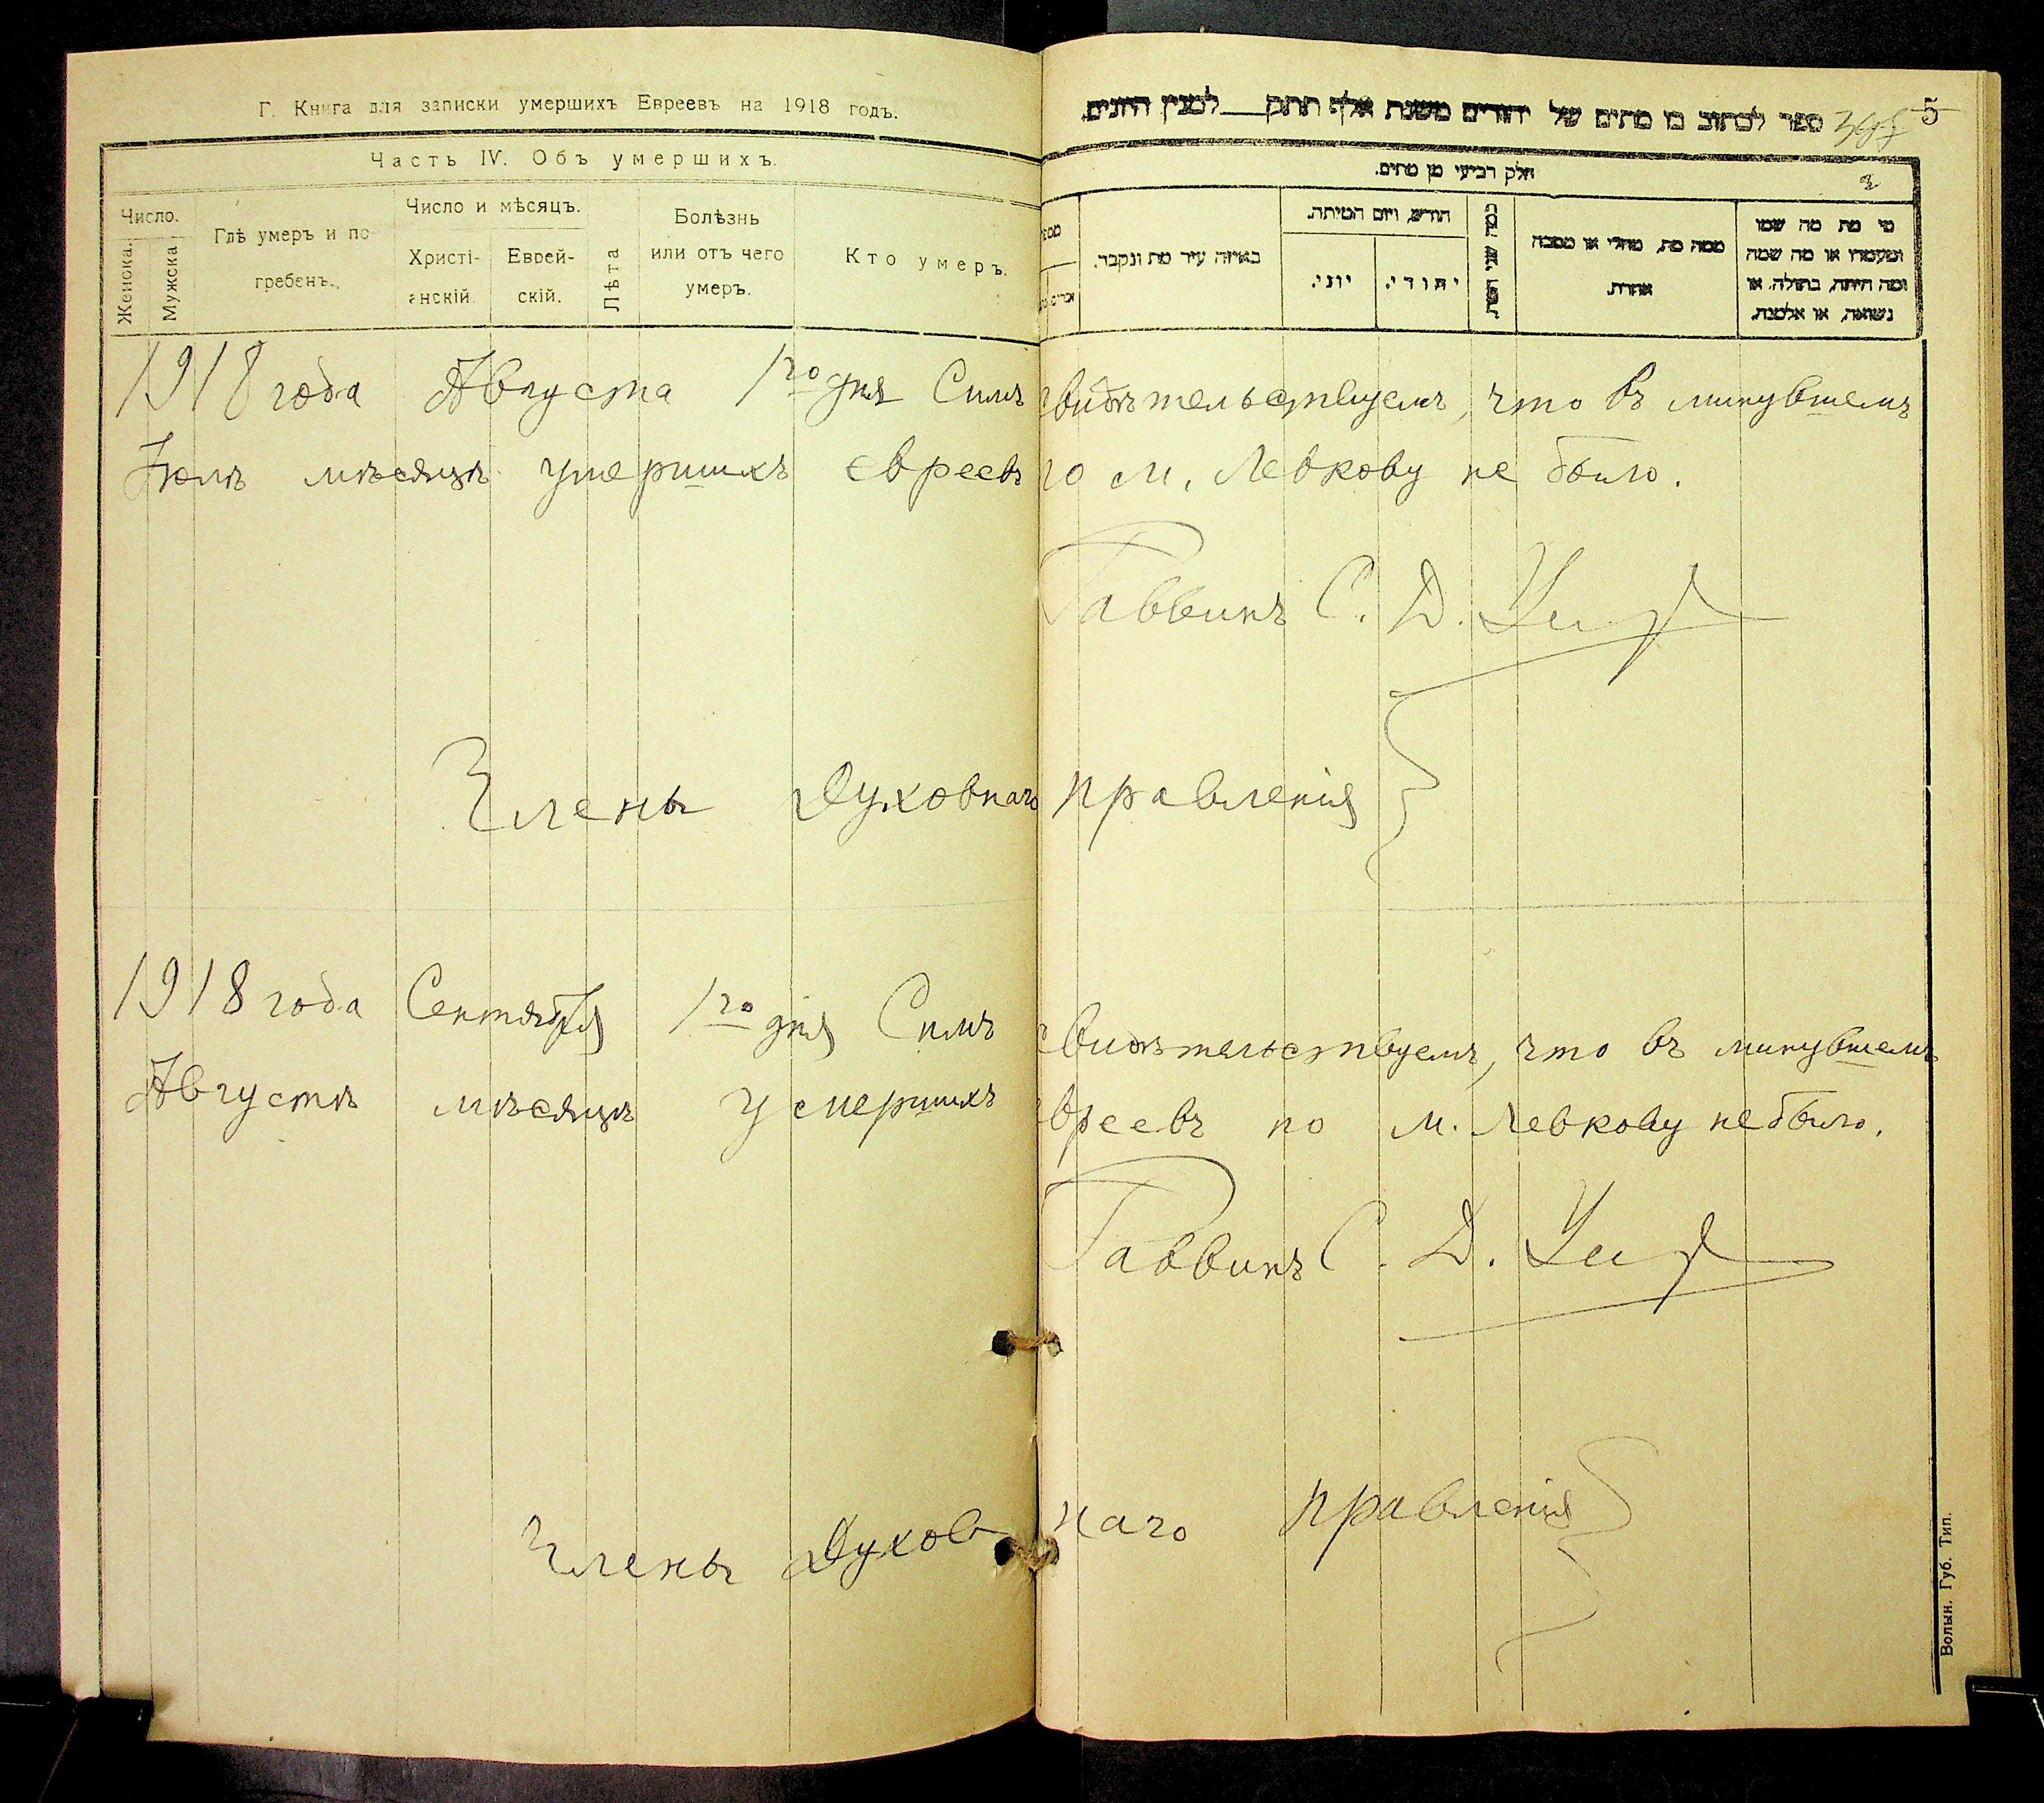 Г. Книга для записки умершихъ Евреевъ на 1918 годъ.
Часть IV. Объ умершихъ.
Число.
Женска.
Мужска
Гдѣ умеръ и по
гребенъ.
Число и мѣсяцъ.
Христі-
анскій.
Еврей-
скій.
Лѣта
Болѣзнь
или отъ чего
умеръ.
Кто умеръ.
ספר לכתוב בו מתים של יהודים משנת אלף תתק לבנין היונים.
5
חלק רביעי מן מתים.
באיזה עיר מת ונקבר.
חודש, ויום המיתה.
יהודי.
יוני.
ממה מת, מחלי או מסבה
אחרת.
מי מת מה שמו
ומעמדו או מה שמה
ומה היתה, בתולה, או
נשואה, או אלמנה.
1918 года Августа 1го дня Симъ свидѣтельствуемъ, что въ минувшемъ
Іюлѣ мѣсяцѣ умершихъ евреевъ по м. Левкову не было.
Раввинъ С. Д.
Члены Духовнаго правленія
1918 года Сентября 1го дня Симъ свидѣтельствуемъ, что въ минувшемъ
Августѣ мѣсяцѣ умершихъ евреевъ по м. Левкову не было.
Раввинъ С. Д.
Члены Духовнаго правленія
Волын. Губ. Тип.